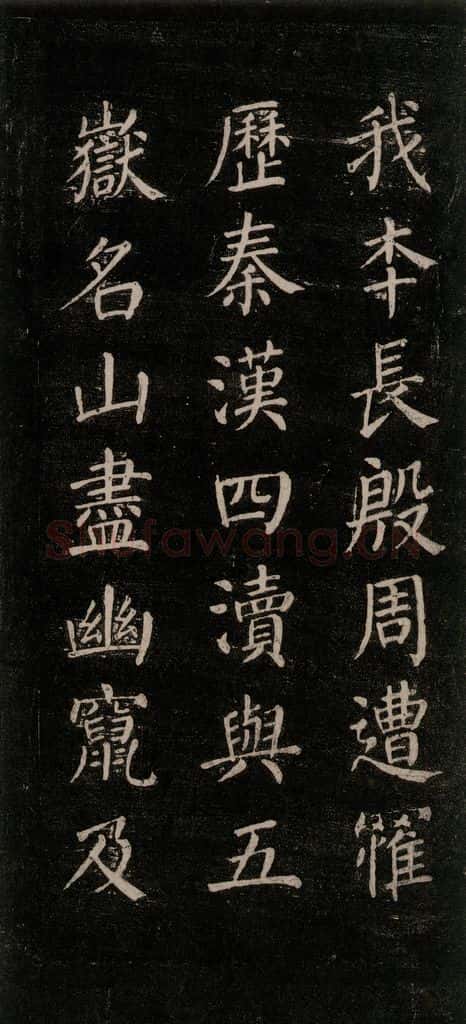 我本長殷周遭罹
歷秦漢四瀆與五
嶽名山盡幽竄及
Shufawang.CN